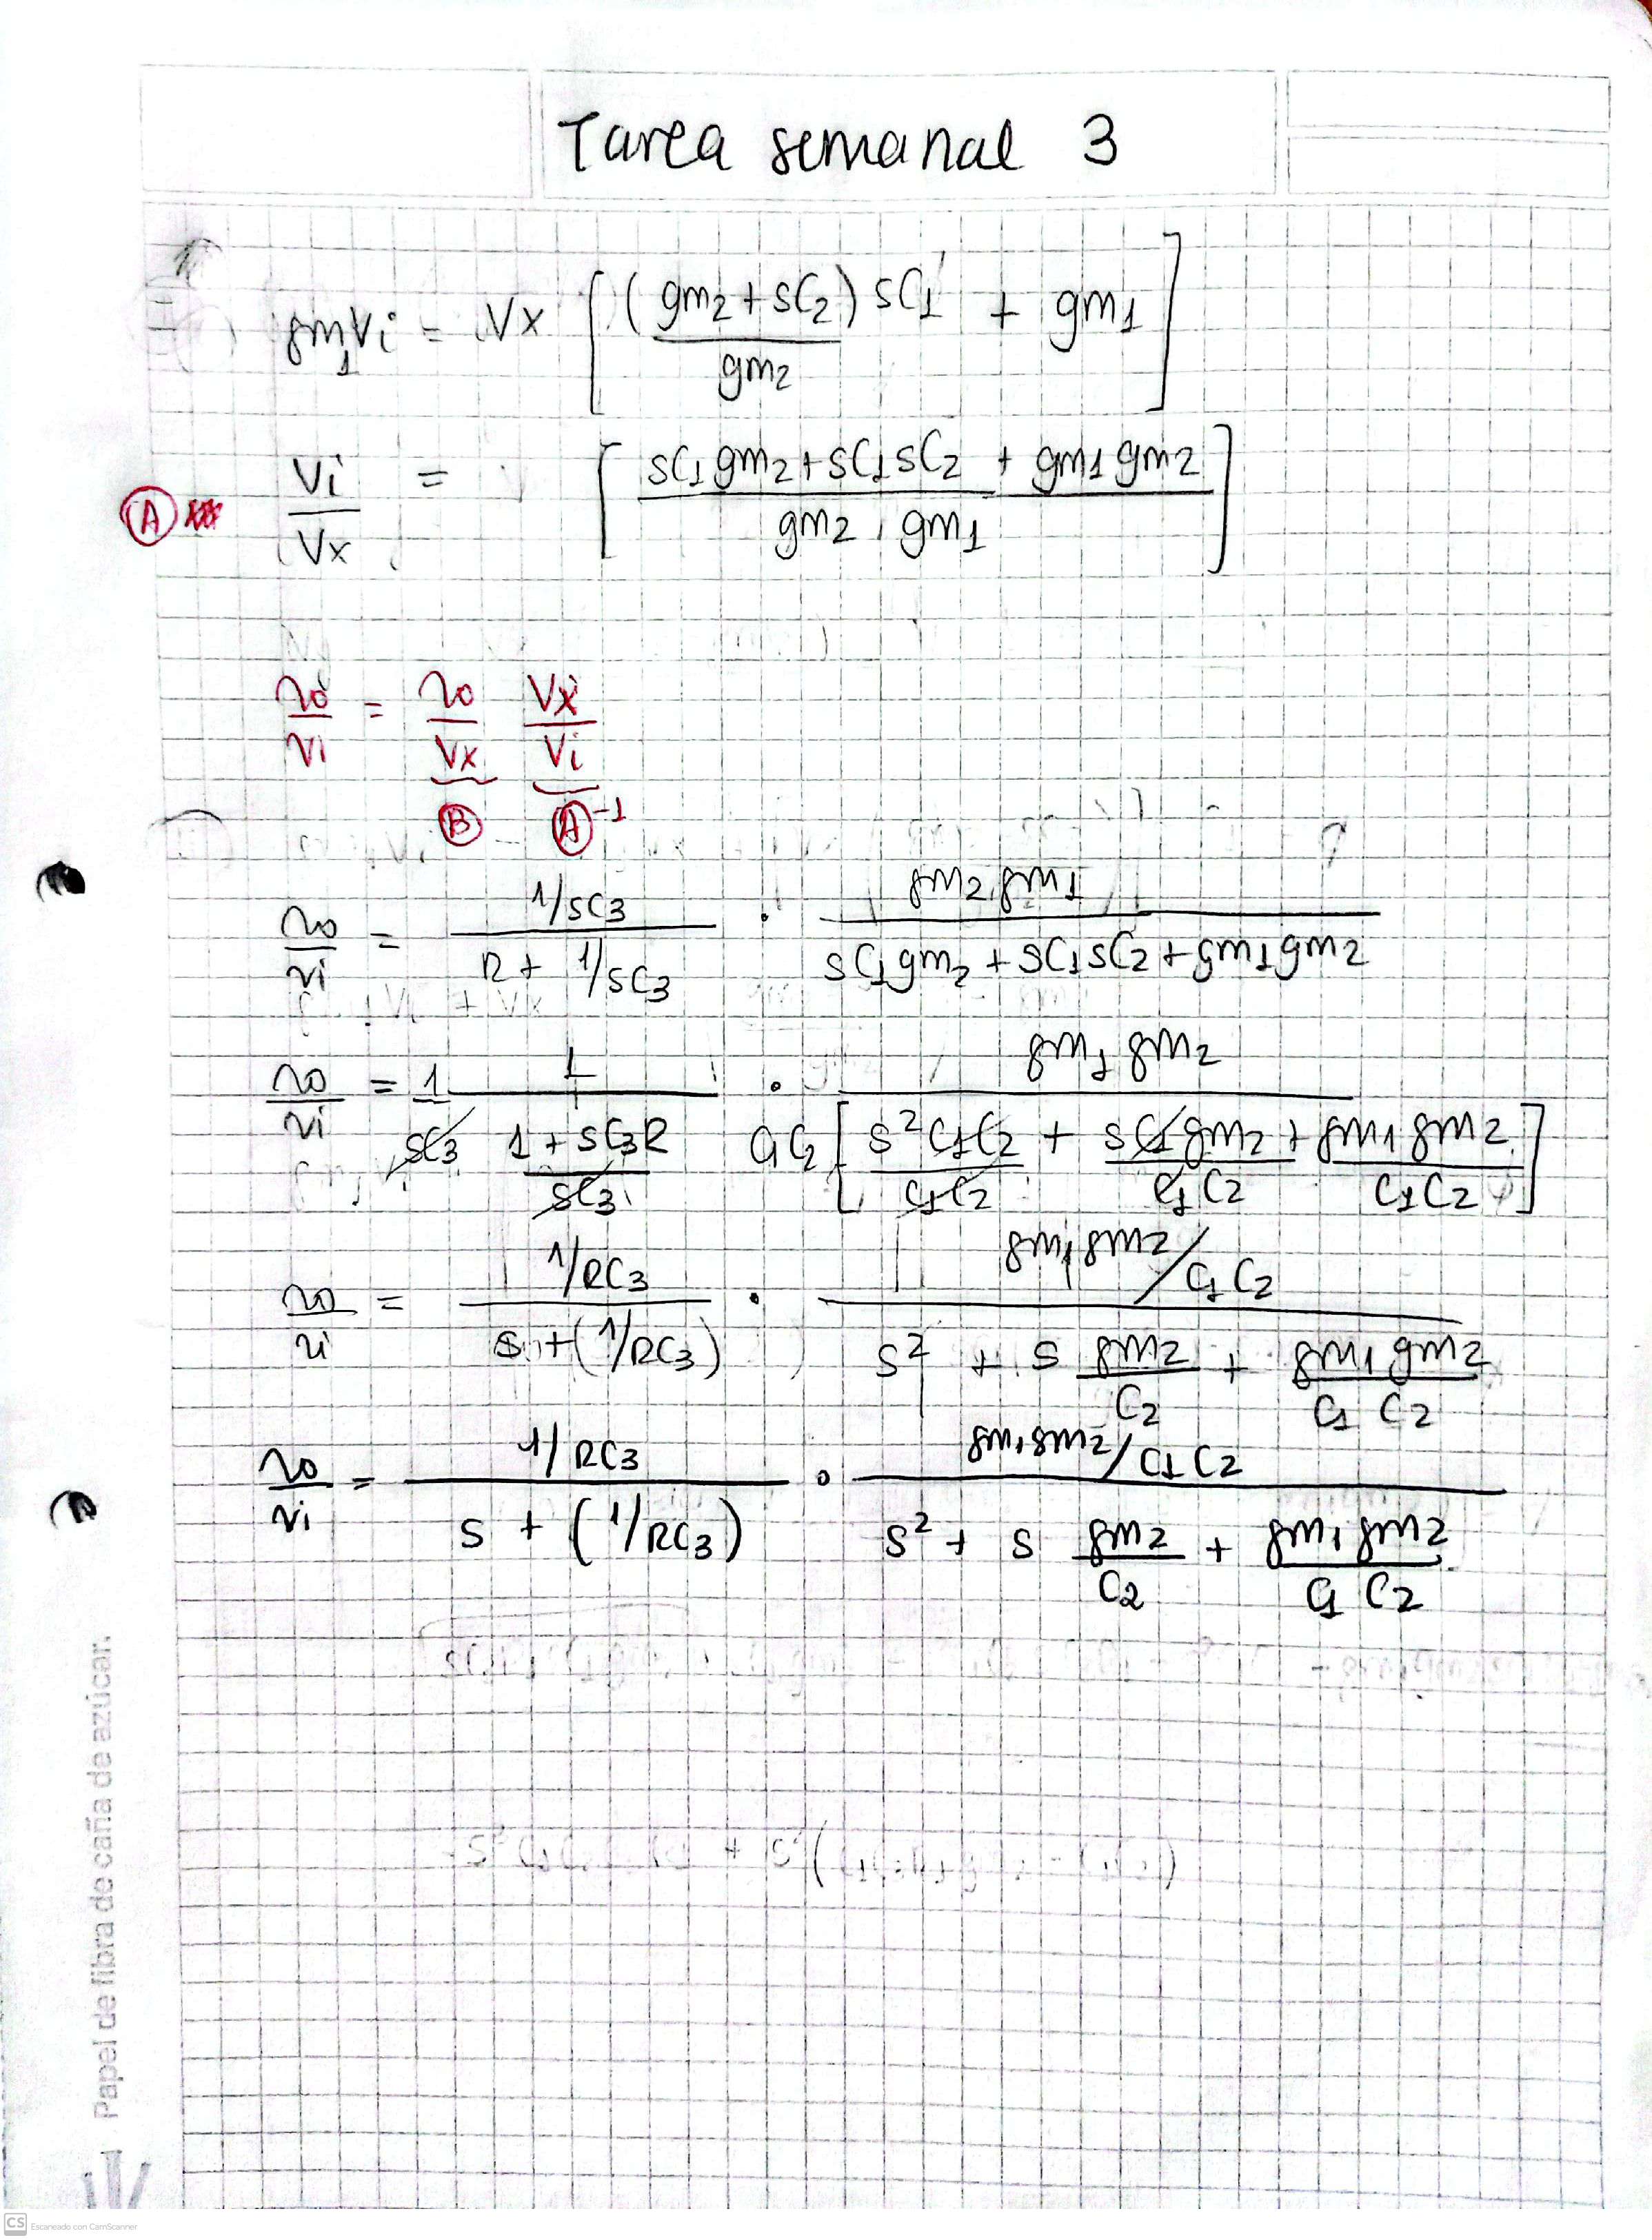 Tarea semanal 3
gm1Vi = Vx [ (gm2 + sC2) sC1 / gm2 + gm1 ]
(A) Vi / Vx = [ sC1gm2 + sC1sC2 + gm1gm2 / gm2 . gm1 ]
vo / vi = vo / Vx Vx / Vi
(B) (A)^-1
vo / vi = 1/sC3 / R + 1/sC3 . gm2.gm1 / sC1gm2 + sC1sC2 + gm1gm2
vo / vi = 1 / sC3 1 / 1 + sC3R / sC3 . gm1gm2 / C1C2 [ s²C1C2 / C1C2 + sC1gm2 / C1C2 + gm1gm2 / C1C2 ]
vo / vi = 1/RC3 / s + (1/RC3) . gm1gm2/C1C2 / s² + s gm2 / C2 + gm1gm2 / C1C2
vo / vi = 1/RC3 / s + (1/RC3) . gm1gm2/C1C2 / s² + s gm2 / C2 + gm1gm2 / C1C2
Papel de fibra de caña de azúcar.
CS Escaneado con CamScanner